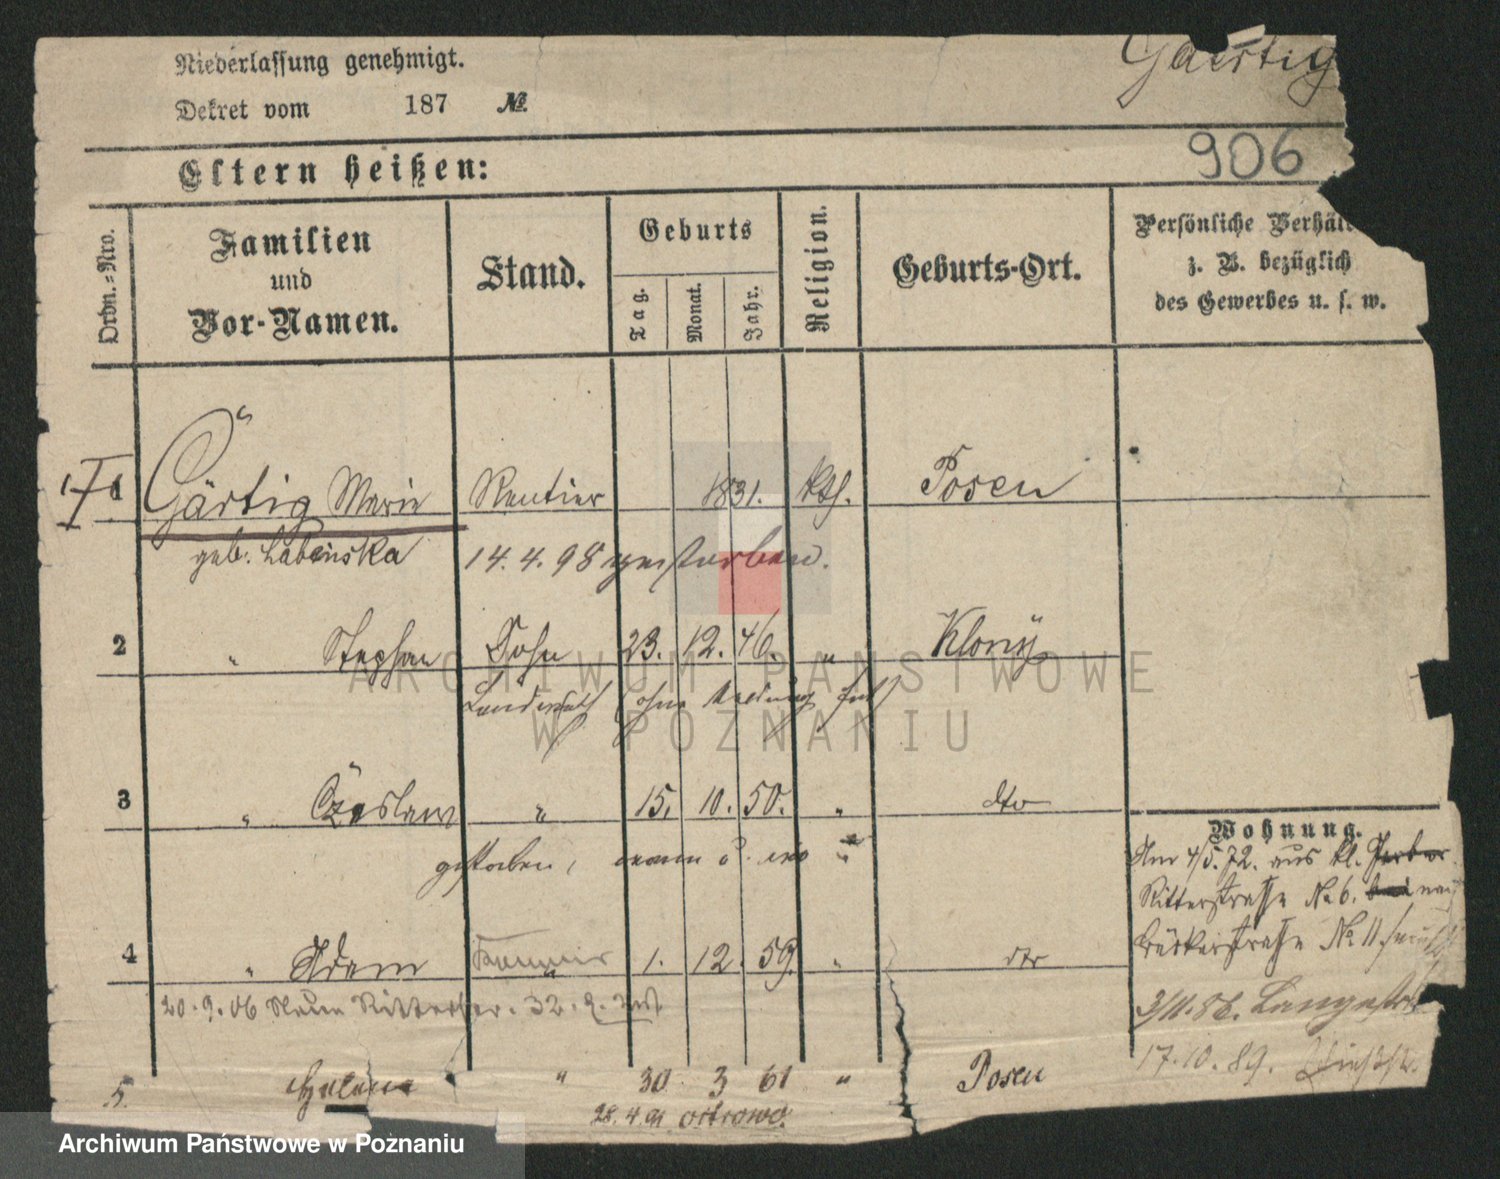 Niederlassung genehmigt.
Gaertig
Dekret vom 187 №
906
Eltern heißen:
Ordn.-Nro.
Familien
und
Vor-Namen.
Stand.
Geburts
Tag.
Monat.
Jahr.
Religion.
Geburts-Ort.
Persönliche Verhält
z. B. bezüglich
des Gewerbes u. s. w.
1 Gärtig Marie Rentier 1831. kth. Posen
geb. Labenska 14.4.98 gestorben.
2 " Stephan Sohn 23. 12. 46. " Klony
ARCHIWUM PAŃSTWOWE
W POZNANIU
3 " Czeslaw " 15. 10. 50. " dto
gestorben, wann u. wo
Wohnung.
Am 4/5.72. aus kl. Gerber
Ritterstraße No 6.
Bäckerstraße No 11.
4 " Adam 1. 12. 59. " dto
20.9.06 Ritterstr. 32.
3/11.86. Langestr
17.10.89.
5. Helene " 30 3 61 " Posen
28.4.91 Ostrowo.
Archiwum Państwowe w Poznaniu